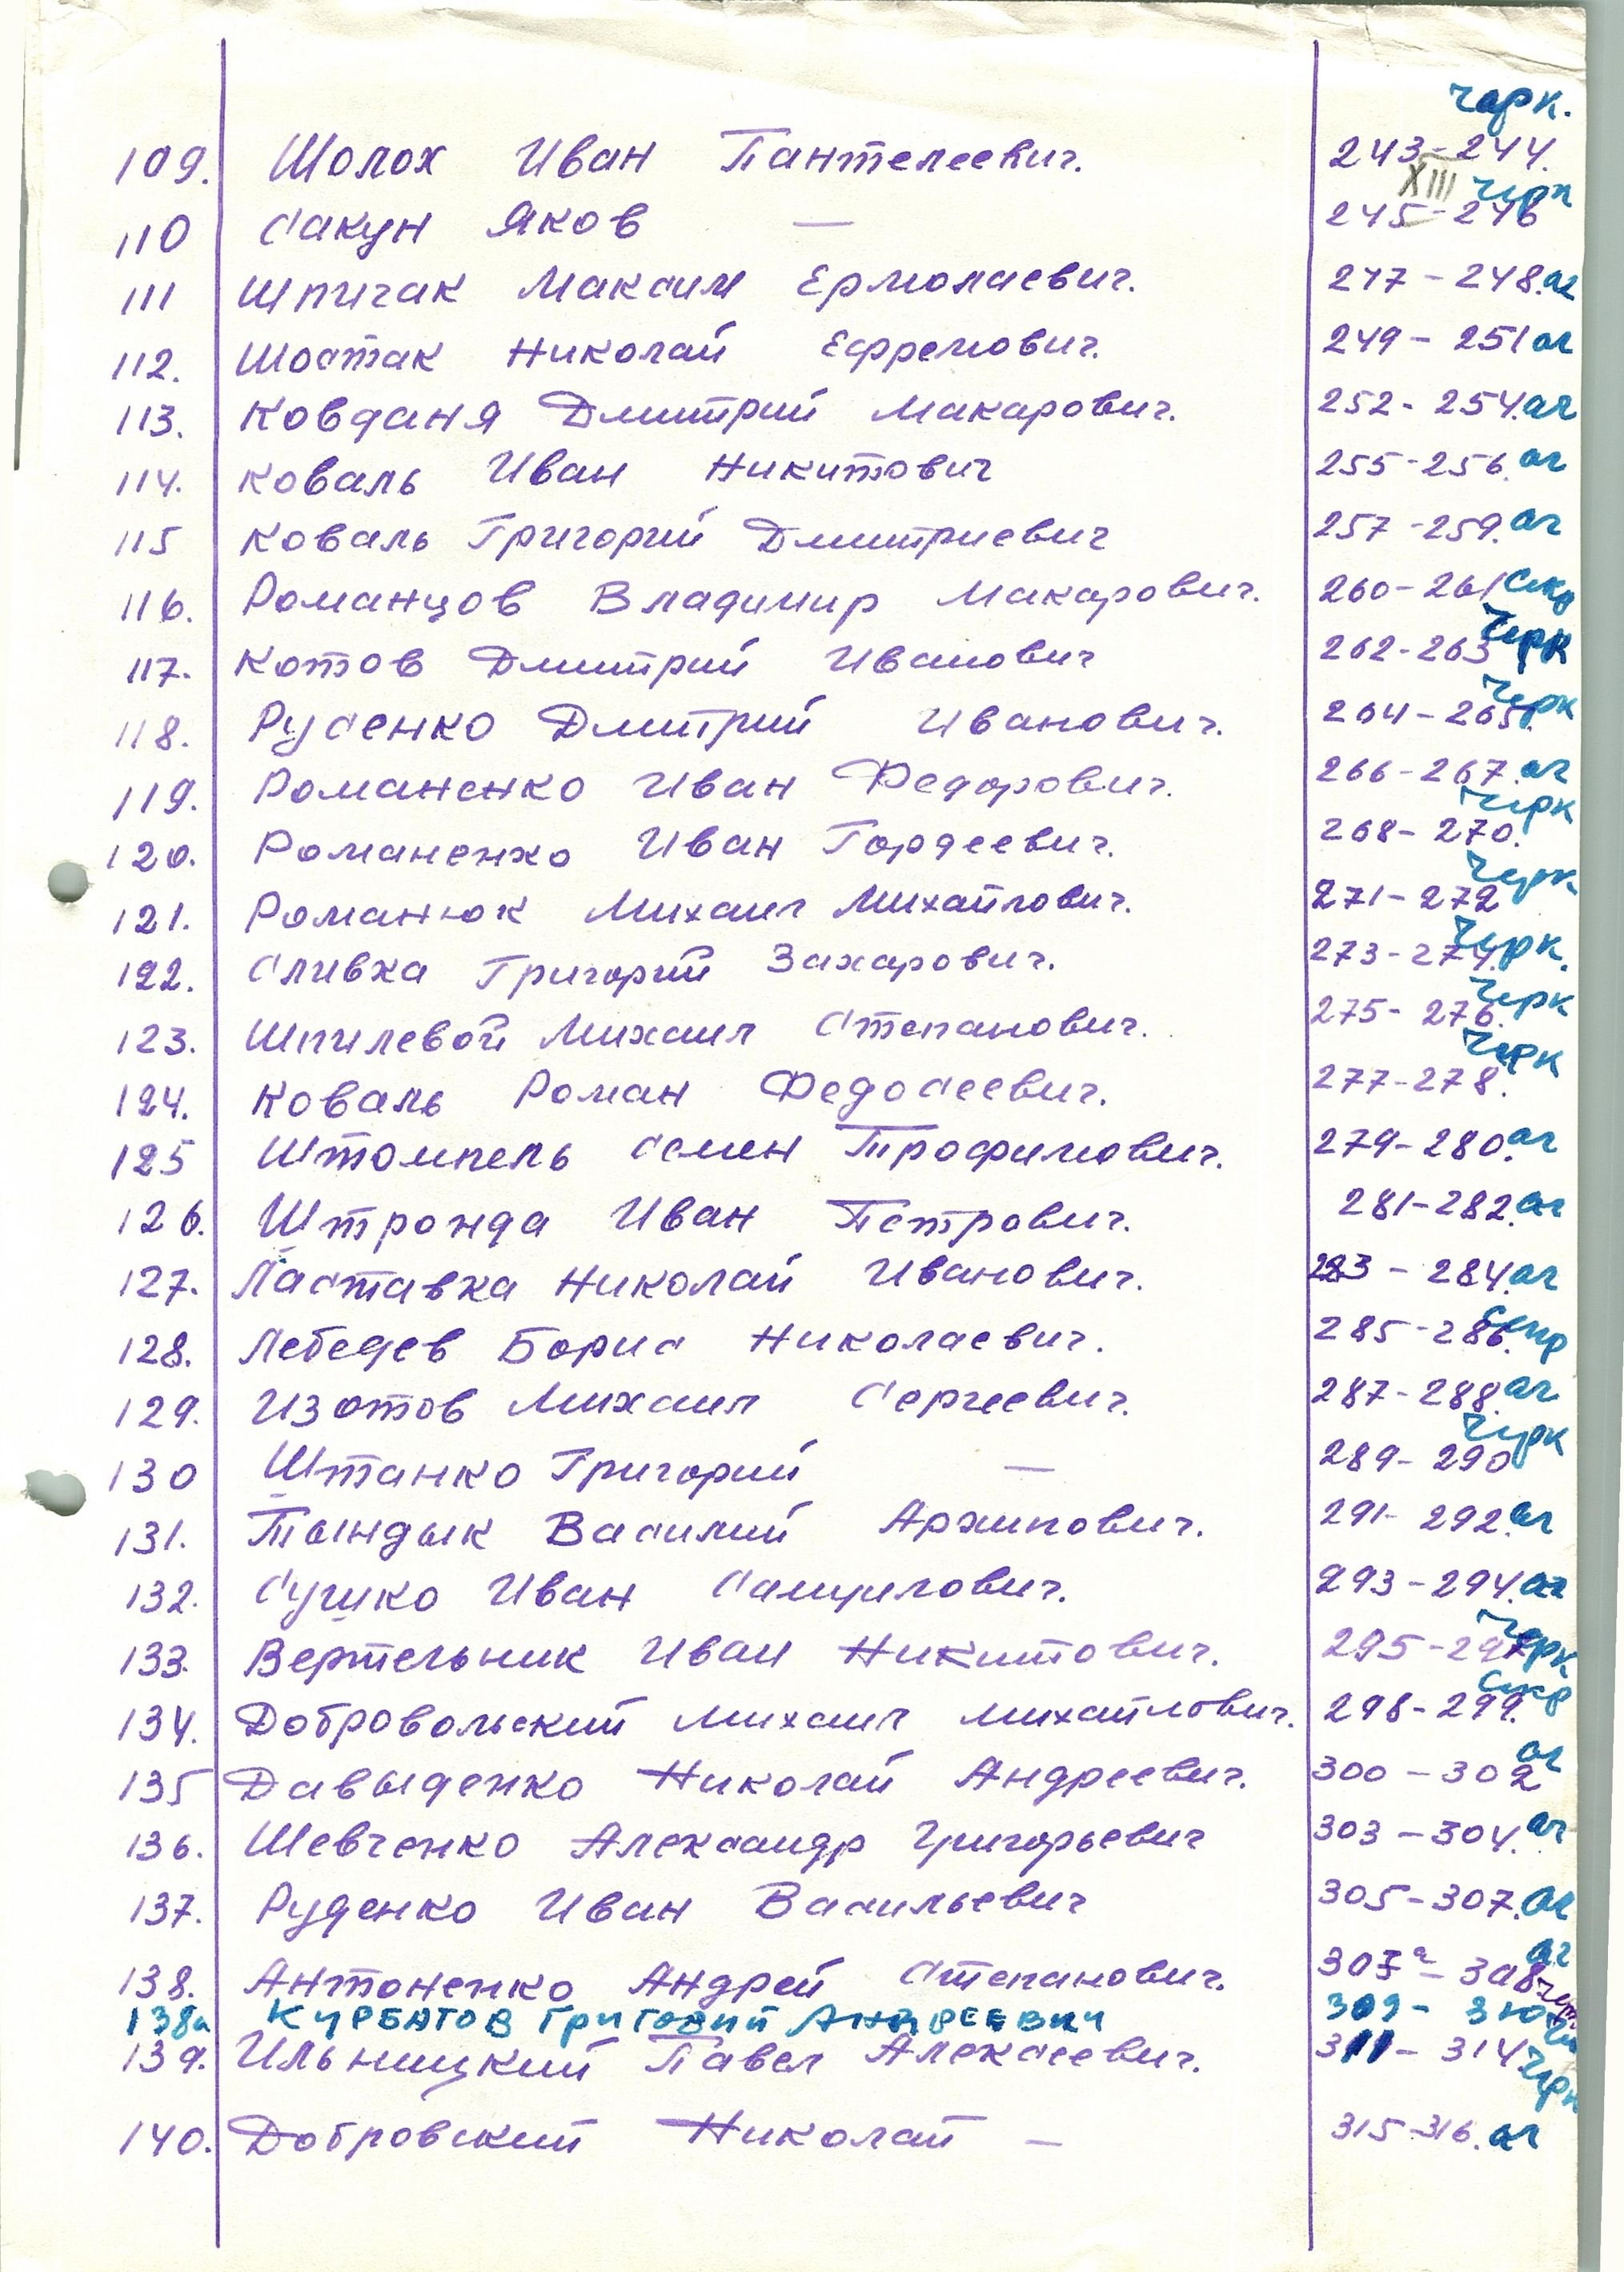 черк.
109. Шолох Иван Пантелеевич. 243-244.
XIII черк
110 Сакун Яков — 245-246
111 Шпичак Максим Ермолаевич. 247-248. аг
112. Шостак Николай Ефремович. 249-251 аг
113. Ковданя Дмитрий Макарович. 252-254. аг
114. Коваль Иван Никитович 255-256. аг
115 Коваль Григорий Дмитриевич 257-259. аг
116. Романцов Владимир Макарович. 260-261
117. Котов Дмитрий Иванович 262-263 черк
118. Русенко Дмитрий Иванович. 264-265. черк
119. Романенко Иван Федорович. 266-267. аг
120. Романенко Иван Гордеевич. 268-270. черк
121. Романюк Михаил Михайлович. 271-272 черк
122. Сливка Григорий Захарович. 273-274. черк.
123. Шпилевой Михаил Степанович. 275-276. черк
124. Коваль Роман Федосеевич. 277-278. черк
125 Штомпель Семен Трофимович. 279-280. аг
126. Штронда Иван Петрович. 281-282. аг
127. Ластавка Николай Иванович. 283-284. аг
128. Лебедев Борис Николаевич. 285-286.
129. Изотов Михаил Сергеевич. 287-288. аг
130 Штанко Григорий — 289-290 черк
131. Тындык Василий Архипович. 291-292. аг
132. Сушко Иван Самуилович. 293-294. аг
133. Вертельник Иван Никитович. 295-297 черк
134. Добровольский Михаил Михайлович. 298-299.
135 Давыденко Николай Андреевич. 300-302 аг
136. Шевченко Александр Григорьевич 303-304. аг
137. Руденко Иван Васильевич 305-307. аг
138. Антоненко Андрей Степанович. 307а-308 аг
138а Курбатов Григорий Андреевич 309-310
139. Ильницкий Павел Алексеевич. 311-314. черк
140. Добровский Николай — 315-316. аг